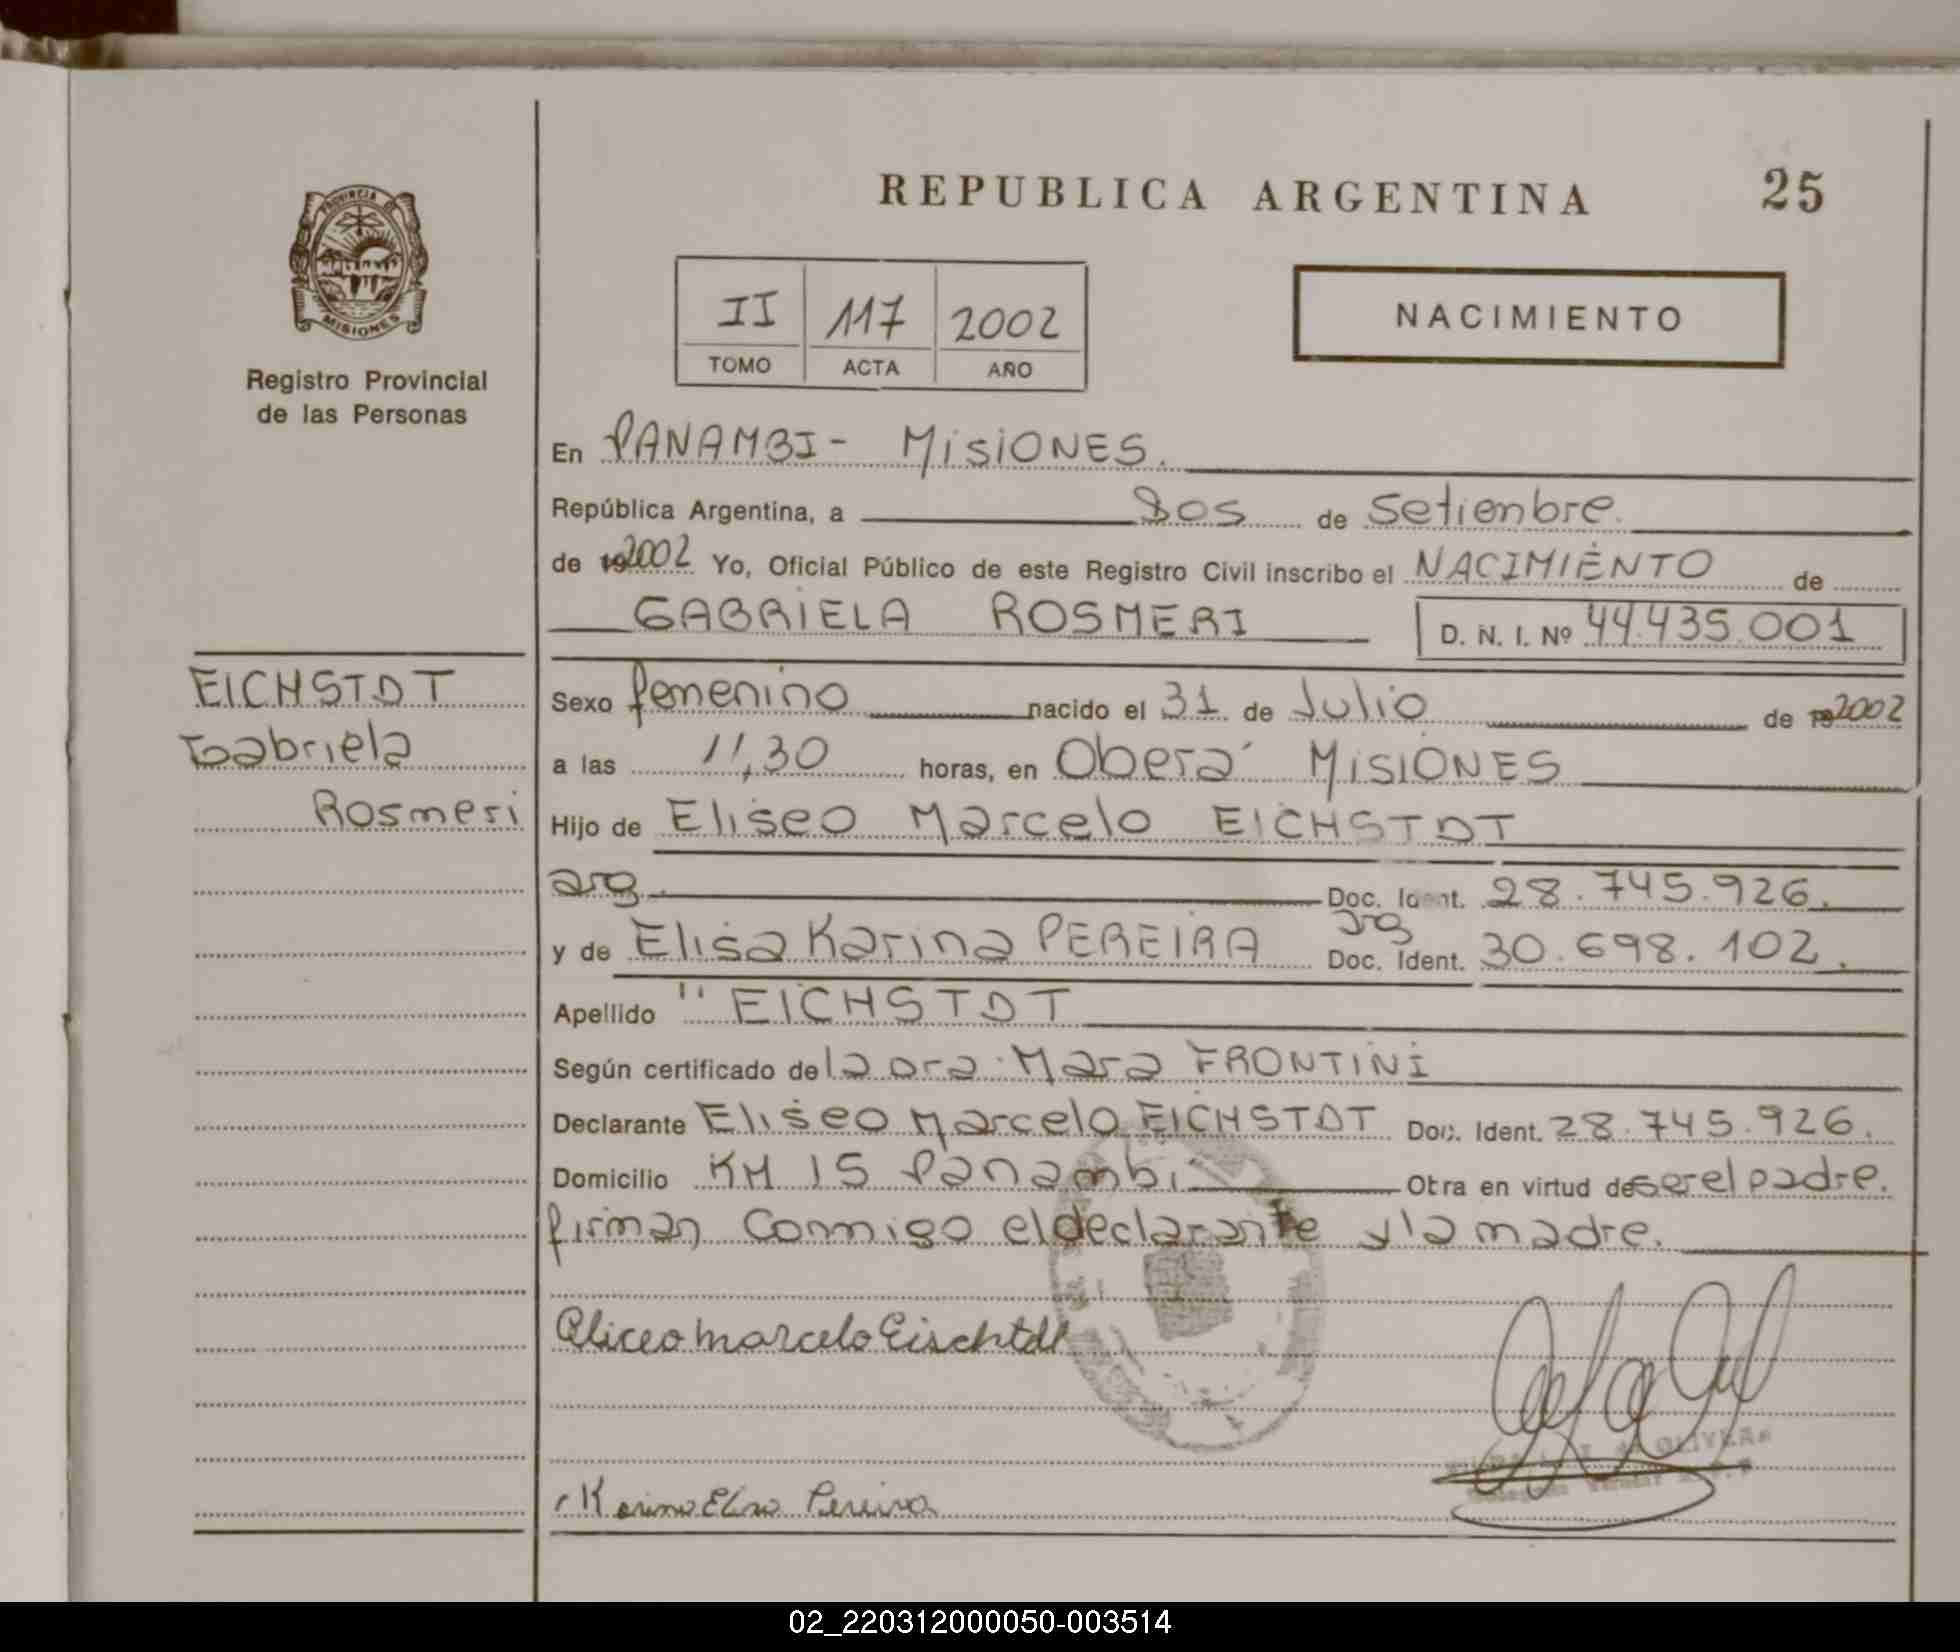 REPUBLICA ARGENTINA
25
PROVINCIA DE
MISIONES
Registro Provincial
de las Personas
II 117 2002
TOMO ACTA AÑO
NACIMIENTO
En PANAMBI - MiSiONES.
República Argentina, a Dos de Setienbre.
de 192002 Yo, Oficial Público de este Registro Civil inscribo el NACIMIENTO de
GABRIELA ROSMERI D. N. I. Nº 44.435.001
EICHSTDT
Gabriela
Rosmeri
Sexo femenino nacido el 31 de Julio de 192002
a las 11,30 horas, en Oberá MISIONES
Hijo de Eliseo Marcelo EICHSTDT
arg. Doc. Ident. 28.745.926.
y de Elisa Karina PEREIRA arg Doc. Ident. 30.698.102.
Apellido " EICHSTDT
Según certificado de la Dra. Mara FRONTINI
Declarante Eliseo Marcelo EICHSTDT Doc. Ident. 28.745.926.
Domicilio KM 15 Panambi Otra en virtud de ser el padre.
firman Conmigo el declarante y la madre.
Eliceo marcelo Eischtdt
OLIVERA
Karina Elisa Pereira
02_220312000050-003514